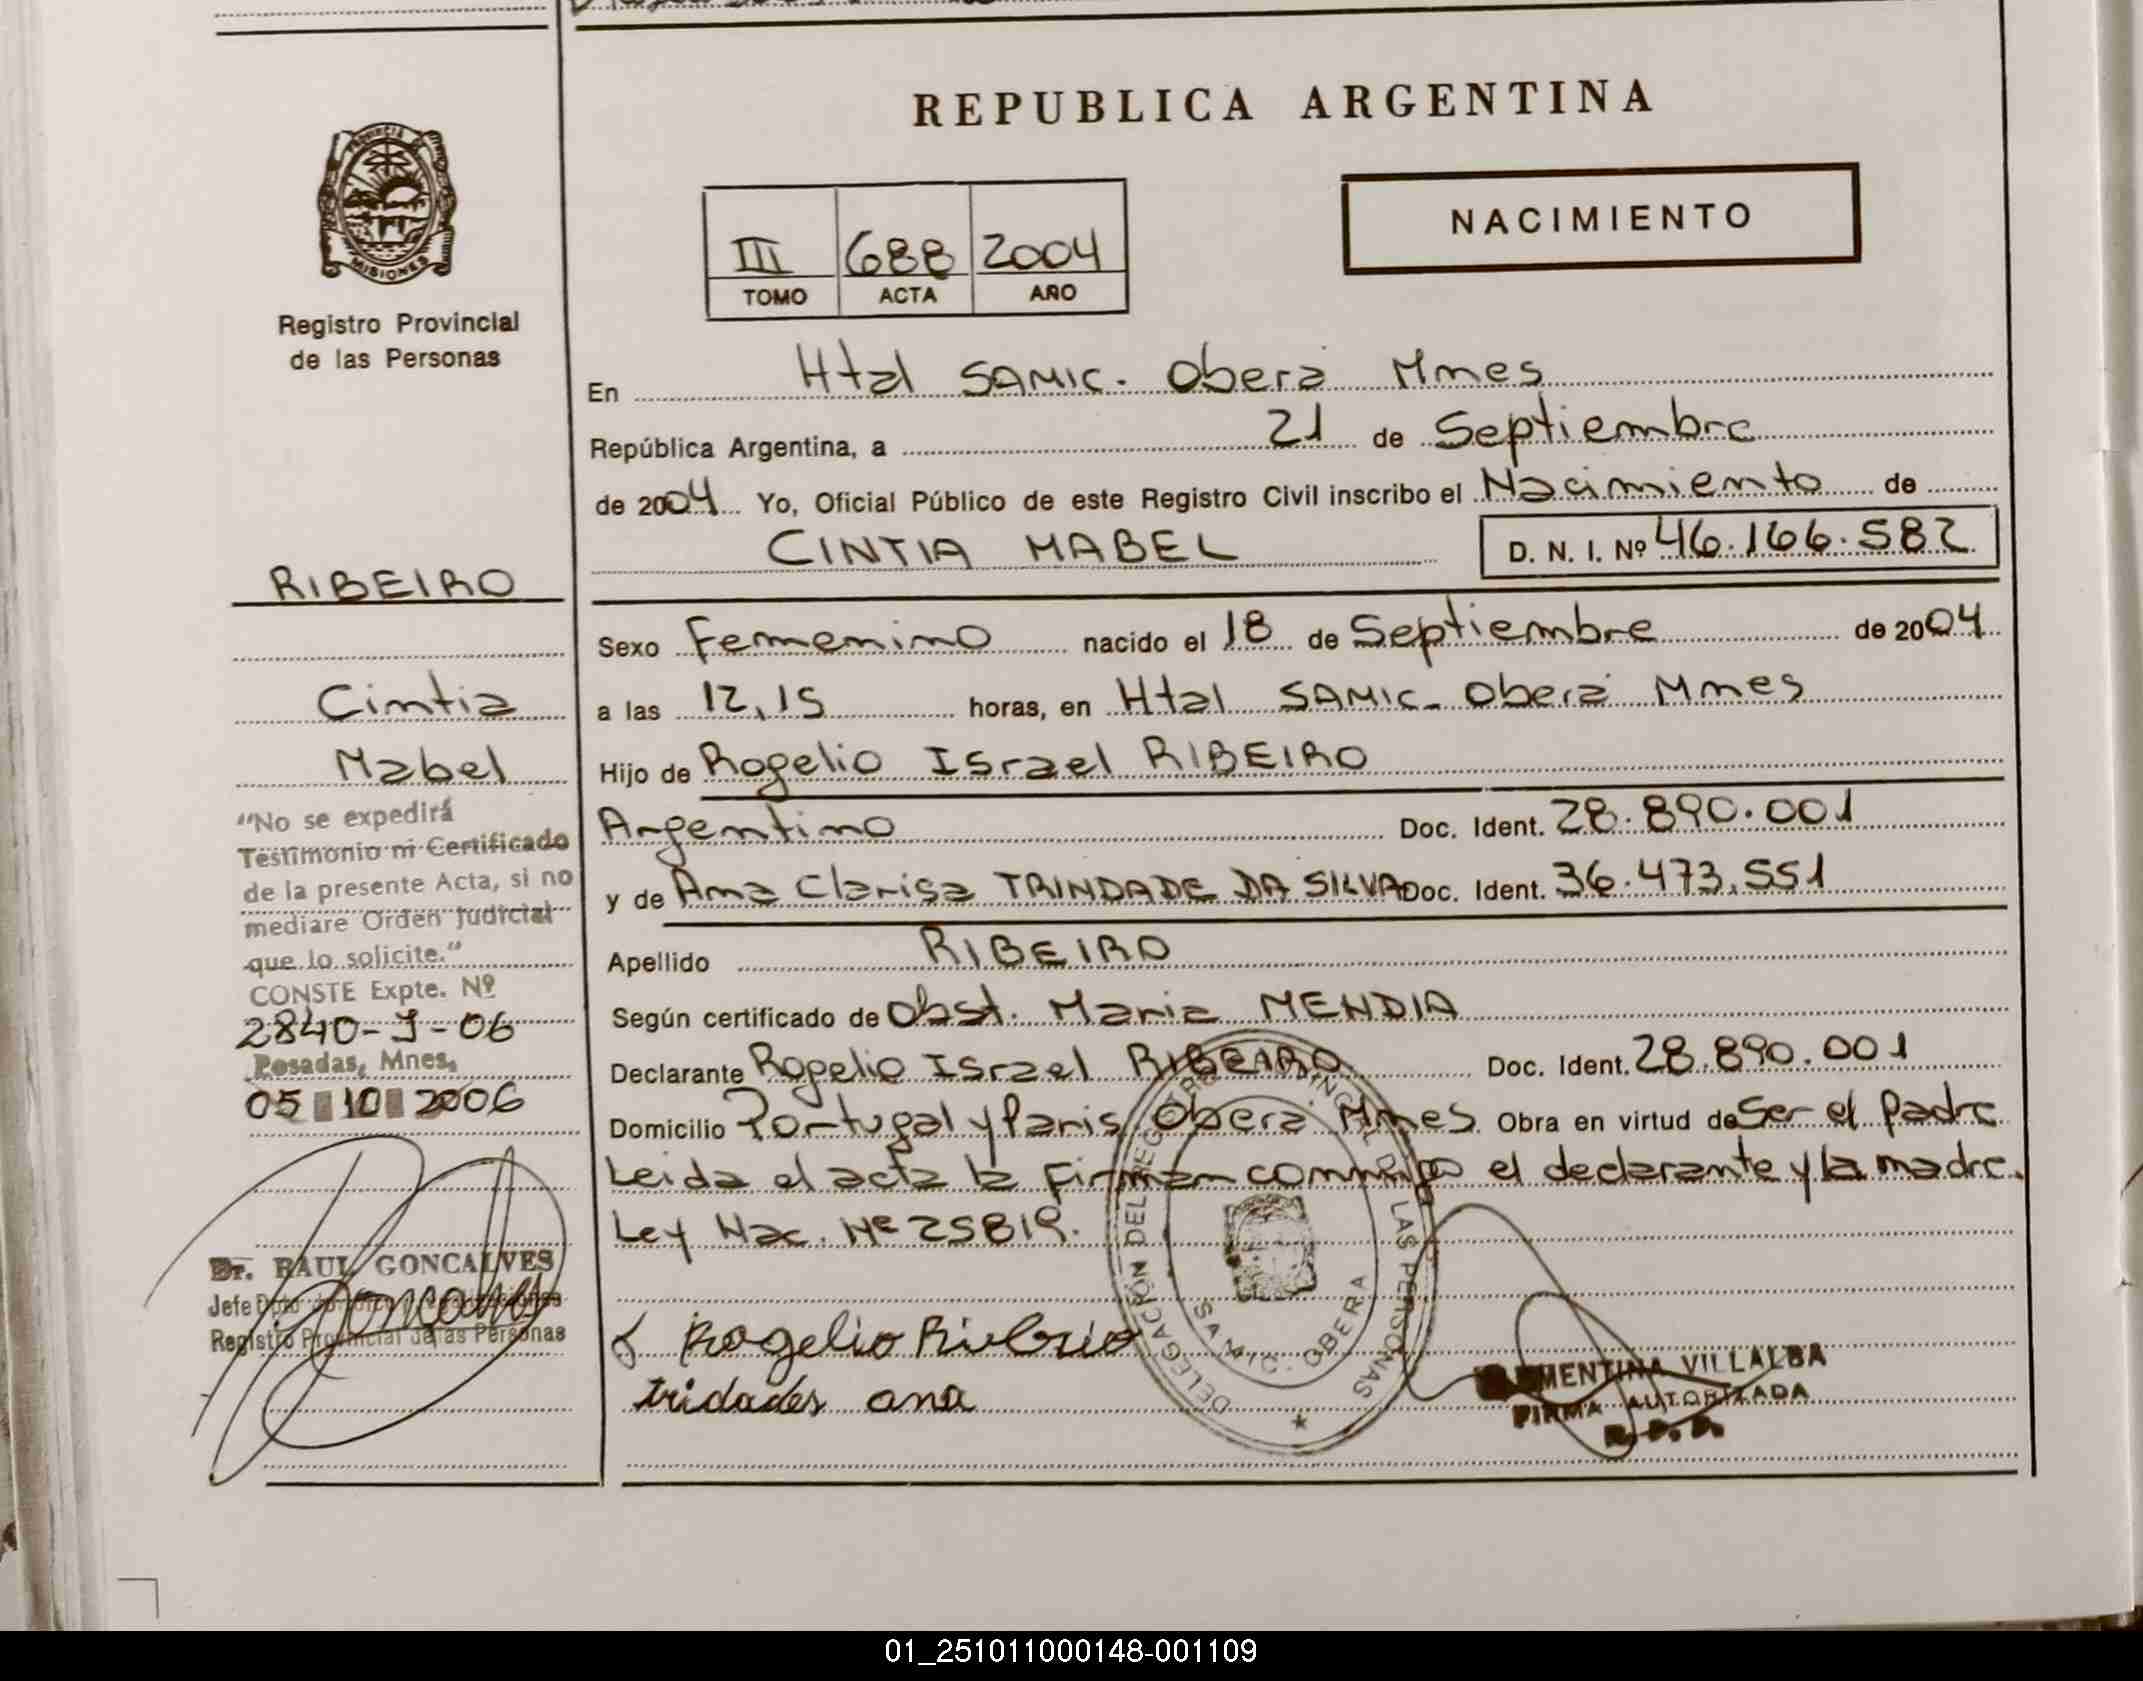 REPUBLICA ARGENTINA
PROVINCIA
MISIONES
Registro Provincial
de las Personas
III 688 2004
TOMO ACTA AÑO
NACIMIENTO
RIBEIRO
Cintia
Mabel
"No se expedirá
Testimonio ni Certificado
de la presente Acta, si no
mediare Orden Judicial
que lo solicite."
CONSTE Expte. Nº
2840-J-06
Posadas, Mnes,
05 10 2006
Dr. RAUL GONCALVES
Jefe Dpto
Registro Provincial de las Personas
En Htal SAMIC. Oberá Mnes
República Argentina, a 21 de Septiembre
de 2004 Yo, Oficial Público de este Registro Civil inscribo el Nacimiento de
CINTIA MABEL D. N. I. Nº 46.166.582
Sexo Femenino nacido el 18 de Septiembre de 2004
a las 12,15 horas, en Htal SAMIC- Oberá Mnes
Hijo de Rogelio Israel RIBEIRO
Argentino Doc. Ident. 28.890.001
y de Ana Clarisa TRINDADE DA SILVA Doc. Ident. 36.473.551
Apellido RIBEIRO
Según certificado de Obst. Maria MENDIA
Declarante Rogelio Israel RIBEIRO Doc. Ident. 28.890.001
Domicilio Portugal y Paris Oberá Mnes Obra en virtud de Ser el padre
Leida el acta la firman conmigo el declarante y la madre.
Ley Nac. Nº 25819.
Rogelio Riberio
tridades ana
DELEGACIÓN DEL REGISTRO PROVINCIAL DE LAS PERSONAS
SAMIC - OBERA
MENTINA VILLALBA
FIRMA AUTORIZADA
R. P. P.
01_251011000148-001109